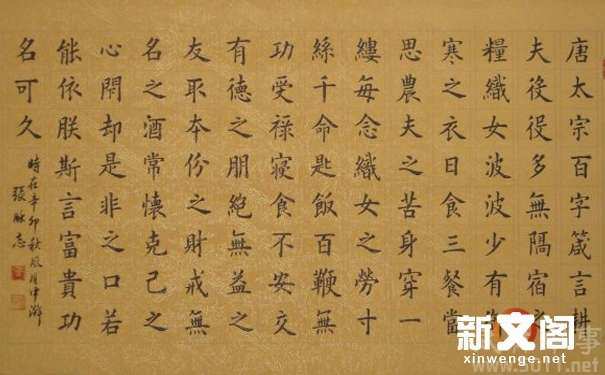 唐太宗百字箴言耕
夫役役多無隔宿之
糧織女波波少有
寒之衣日食三餐當
思農夫之苦身穿一
縷每念織女之勞寸
絲千命匙飯百鞭無
功受祿寢食不安交
有德之朋絕無益之
友取本份之財戒無
名之酒常懷克己之
心閑却是非之口若
能依朕斯言富貴功
名可久
時在辛卯秋月中澣
張志
新文阁
xinwenge.net